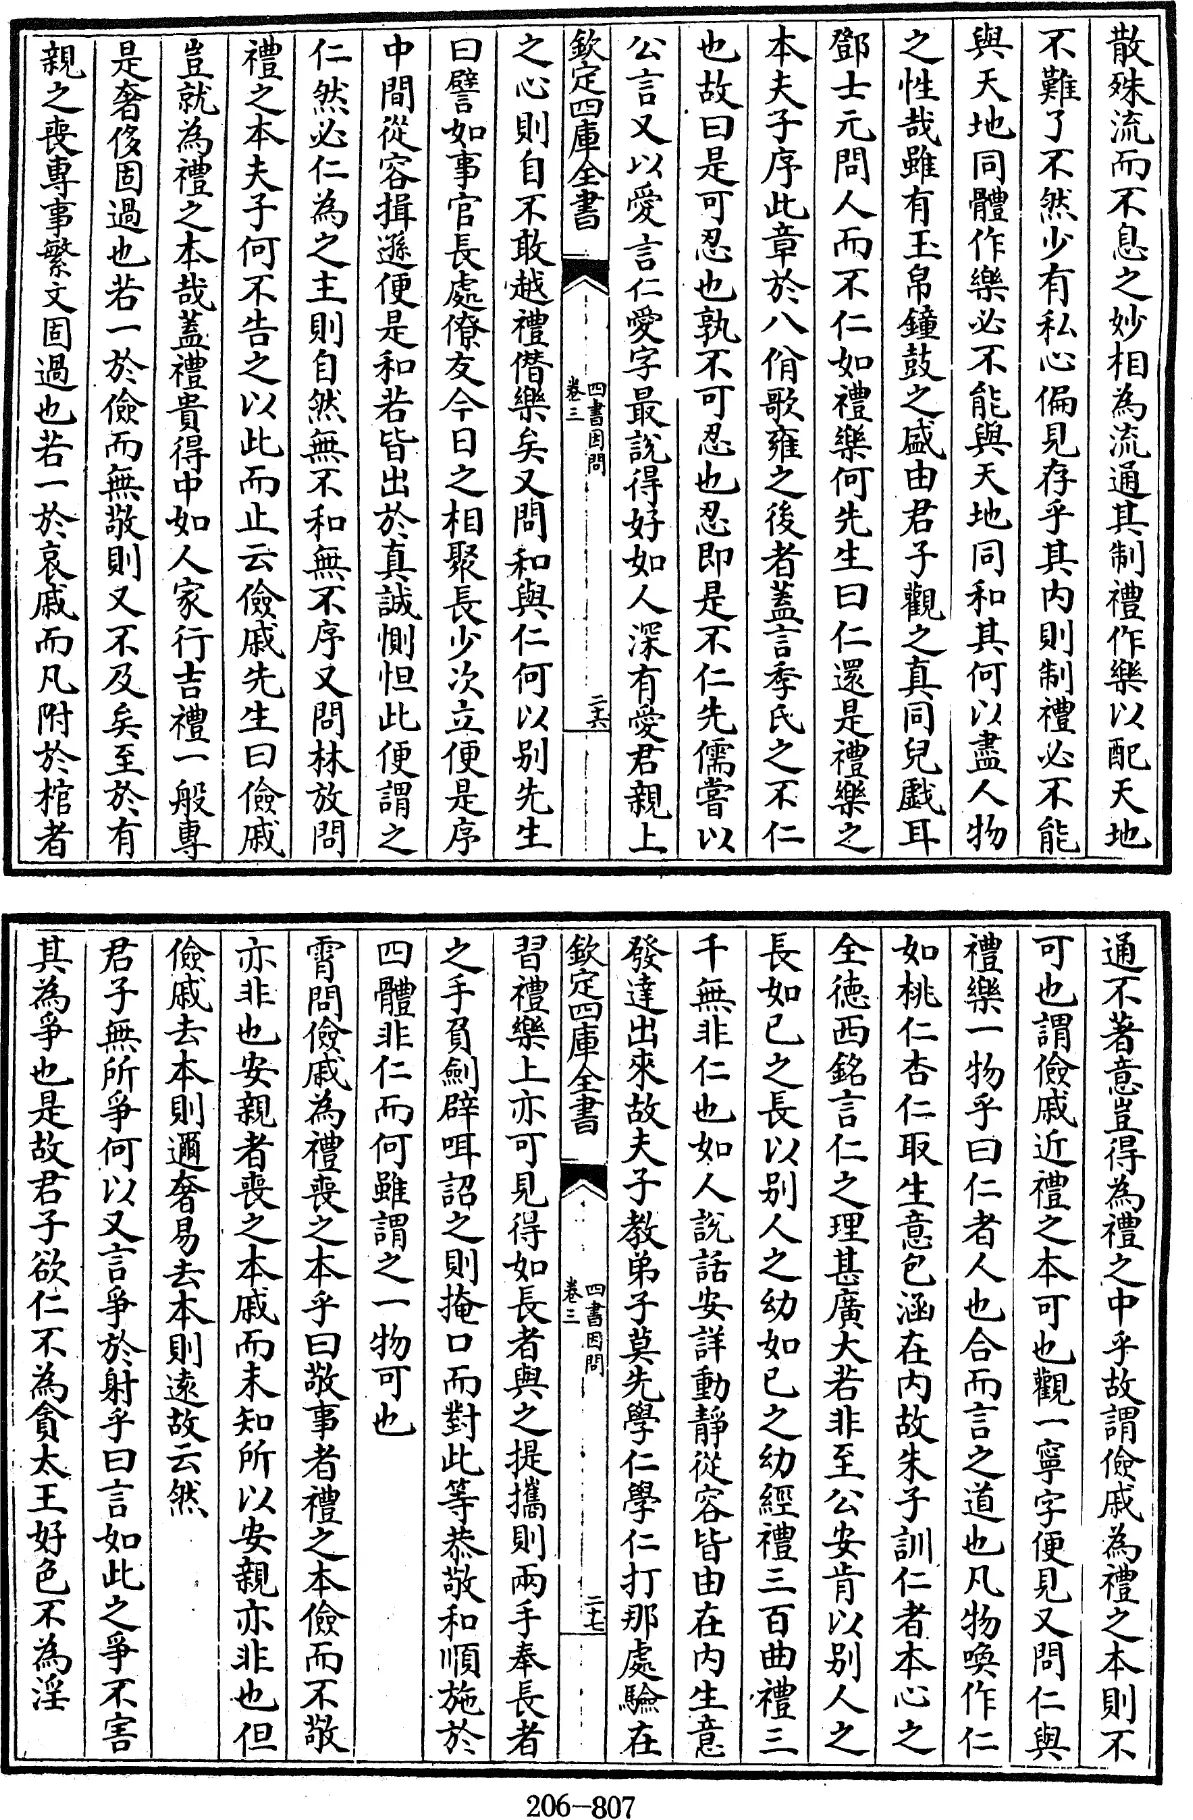 散殊流而不息之妙相為流通其制禮作樂以配天地
不難了不然少有私心偏見存乎其内則制禮必不能
與天地同體作樂必不能與天地同和其何以盡人物
之性哉雖有玉帛鐘鼓之盛由君子觀之真同兒戲耳
鄧士元問人而不仁如禮樂何先生曰仁還是禮樂之
本夫子序此章於八佾歌雍之後者蓋言季氏之不仁
也故曰是可忍也孰不可忍也忍即是不仁先儒嘗以
公言又以愛言仁愛字最說得好如人深有愛君親上
欽定四庫全書
四書因問
卷三
二十六
之心則自不敢越禮僭樂矣又問和與仁何以别先生
曰譬如事官長處僚友今日之相聚長少次立便是序
中間從容揖遜便是和若皆出於真誠惻怛此便謂之
仁然必仁為之主則自然無不和無不序又問林放問
禮之本夫子何不告之以此而止云儉戚先生曰儉戚
豈就為禮之本哉蓋禮貴得中如人家行吉禮一般專
是奢侈固過也若一於儉而無敬則又不及矣至於有
親之喪專事繁文固過也若一於哀戚而凡附於棺者
通不著意豈得為禮之中乎故謂儉戚為禮之本則不
可也謂儉戚近禮之本可也觀一寧字便見又問仁與
禮樂一物乎曰仁者人也合而言之道也凡物喚作仁
如桃仁杏仁取生意包涵在内故朱子訓仁者本心之
全德西銘言仁之理甚廣大若非至公安肯以别人之
長如已之長以别人之幼如已之幼經禮三百曲禮三
千無非仁也如人說話安詳動靜從容皆由在内生意
發達出來故夫子教弟子莫先學仁學仁打那處驗在
欽定四庫全書
四書因問
卷三
二十七
習禮樂上亦可見得如長者與之提攜則兩手奉長者
之手負劍辟咡詔之則掩口而對此等恭敬和順施於
四體非仁而何雖謂之一物可也
霄問儉戚為禮喪之本乎曰敬事者禮之本儉而不敬
亦非也安親者喪之本戚而未知所以安親亦非也但
儉戚去本則邇奢易去本則遠故云然
君子無所爭何以又言爭於射乎曰言如此之爭不害
其為爭也是故君子欲仁不為貪太王好色不為淫
206-807